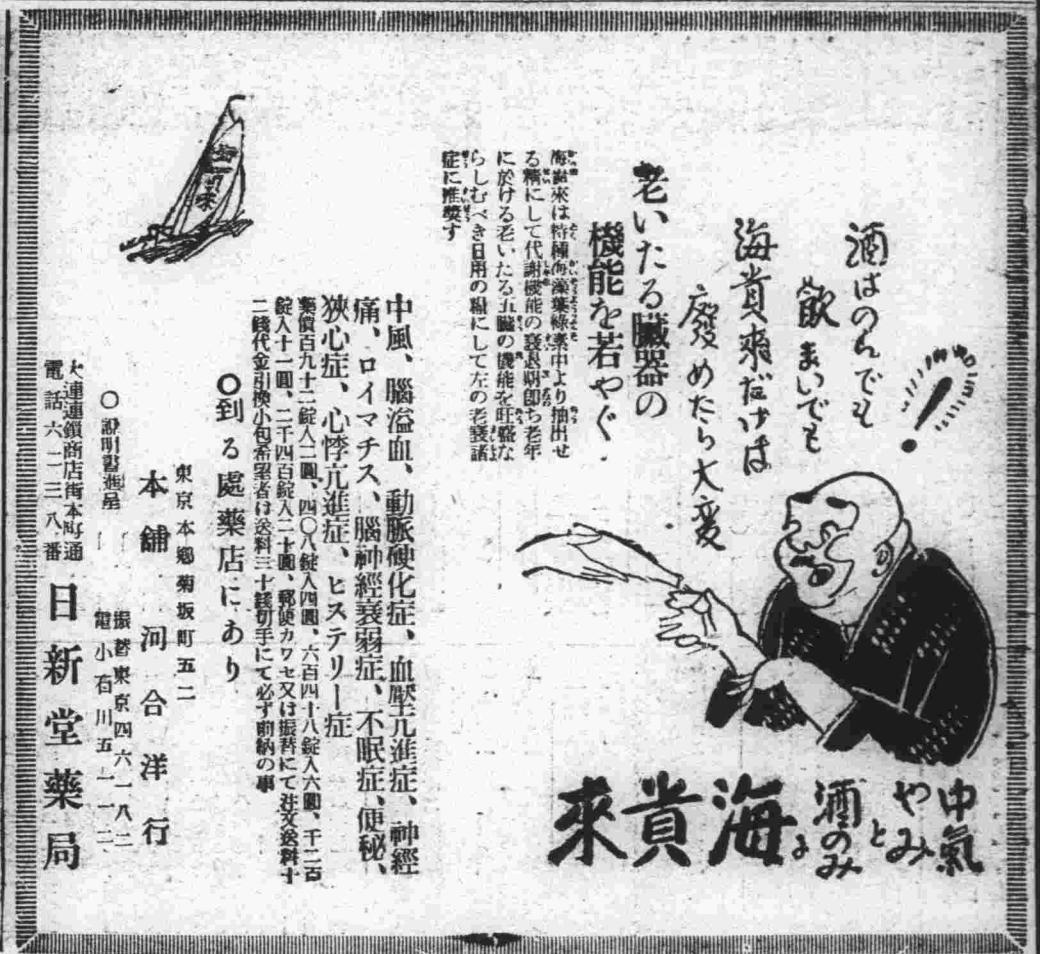 酒はのんでも
飲まいでも
海貴來だけは
廢めたら大変
!
中氣
やみと
酒のみに
海貴來
老いたる臓器の
機能を若やぐ
海貴來は特種海藻葉綠素中より抽出せ
る精にして代謝機能の衰退期卽ち老年
に於ける老いたる五臓の機能を旺盛な
らしむべき日用の糧にして左の老衰諸
症に推奬す
中風、腦溢血、動脈硬化症、血壓亢進症、神經
痛、ロイマチス、腦神經衰弱症、不眠症、便秘、
狹心症、心悸亢進症、ヒステリー症
藥價百九十二錠入二圓、四〇八錠入四圓、六百四十八錠入六圓、千二百
錠入十一圓、二千四百錠入二十圓、郵便カワセ又は振替にて注文送料十
二錢代金引換小包希望者は送料三十錢切手にて必ず前納の事
○到る處藥店にあり
東京本鄕菊坂町五二
本舖 河合洋行
振替東京四六一八二
電小石川五一一二
○說明書進呈
大連連鎖商店街本町通
電話六一三八番
日新堂藥局